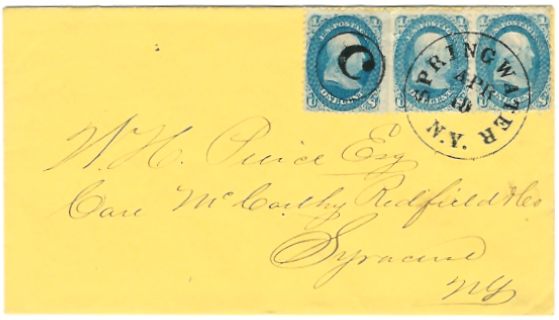 U.S. POSTAGE U.S. POSTAGE U.S. POSTAGE
ONE CENT ONE CENT ONE CENT
C
SPRINGWATER
APR
10
N.Y.
W. H. Pierce Esq
Care McCarthy Redfield & Co
Syracuse
NY